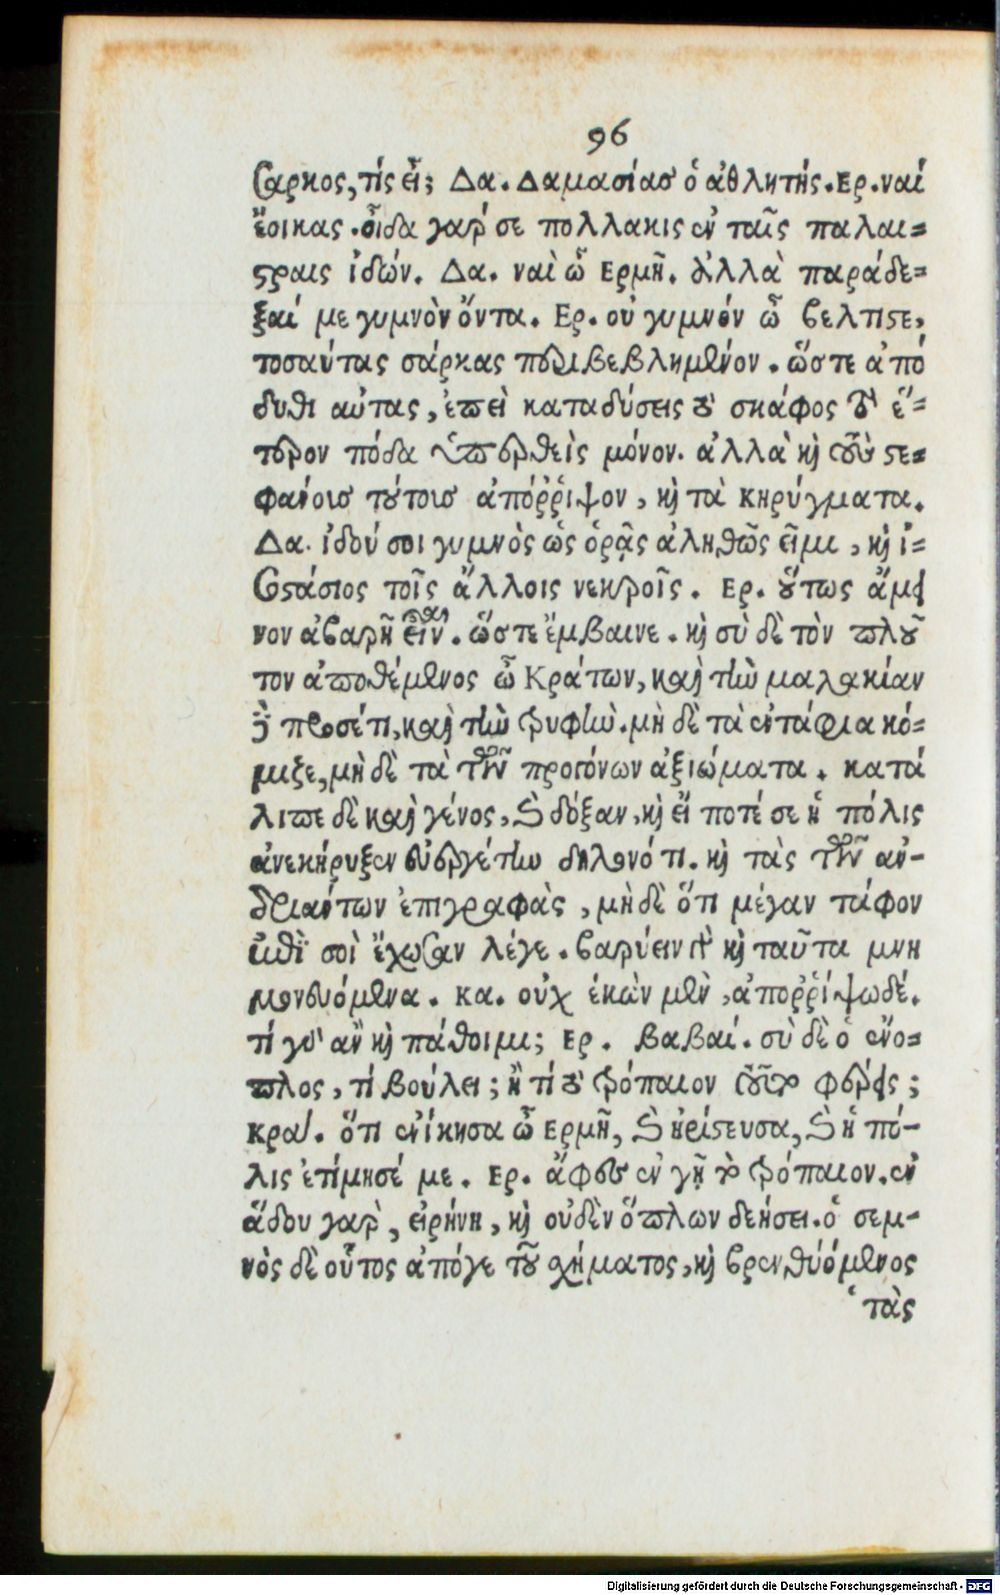 96
σαρκος, τίς εἶ; Δα. Δαμασίας ὁ ἀθλητής. Ερ. ναί
ἔοικας. οἶδα γαρ σε πολλακις ἐν ταῖς παλαι=
στραις ἰδών. Δα. ναὶ ὦ Ερμῆ. ἀλλὰ παράδε=
ξαί με γυμνὸν ὄντα. Ερ. οὐ γυμνόν ὦ βελτιστε,
τοσαύτας σάρκας περιβεβλημένον. ὥστε ἀπό
δυθι αὐτας, ἐπεὶ καταδύσεις τὸ σκάφος τὸν ἕ=
τερον πόδα ὑπερθεὶς μόνον. ἀλλὰ καὶ τοὺς στε=
φανοισ τούτοισ ἀπόῤῥιψον, καὶ τὰ κηρύγματα.
Δα. ἰδού σοι γυμνὸς ὡς ὁρᾷς ἀληθῶς εἶμι, καὶ ἰ=
σοστάσιος τοῖς ἄλλοις νεκροῖς. Ερ. οὕτως ἄμει
νον ἀβαρῆ εἶναι. ὥστε ἔμβαινε. καὶ σὺ δὲ τὸν πλοῦ
τον ἀποθέμενος ὦ Κράτων, καὶ τὴν μαλακίαν
δὲ προσέτι, καὶ τὴν τρυφὴν. μὴ δὲ τὰ ἐντάφια κό=
μιζε, μὴ δὲ τὰ τῶν προγόνων ἀξιώματα. κατά
λιπε δὲ καὶ γένος, καὶ δόξαν, καὶ εἴ ποτέ σε ἡ πόλις
ἀνεκήρυξεν εὐεργέτην δηλονότι. καὶ τὰς τῶν ἀν-
δριάντων ἐπιγραφὰς, μὴ δὲ ὅτι μέγαν τάφον
ἐπὶ σοὶ ἔχωσαν λέγε. βαρύει γὰρ καὶ ταῦτα μνη
μονευόμενα. κα. οὐχ ἑκὼν μὲν, ἀποῤῥίψω δέ.
τί γὰρ ἂν καὶ πάθοιμι; Ερ. βαβαί. σὺ δὲ ὁ ἔνο=
πλος, τί βούλει; ἢ τί τὸ τρόπαιον τοῦτο φέρεις;
κρα. ὅτι ἐνίκησα ὦ Ερμῆ, καὶ ἠρίστευσα, καὶ ἡ πό-
λις ἐτίμησέ με. Ερ. ἄφες ἐν γῇ τὸ τρόπαιον. ἐν
ἅδου γαρ, εἰρήνη, καὶ οὐδὲν ὅπλων δεήσει. ὁ σεμ-
νὸς δὲ οὗτος ἀπόγε τοῦ σχήματος, καὶ βρενθυόμενος
ὁ τὰς
Digitalisierung gefördert durch die Deutsche Forschungsgemeinschaft - DFG